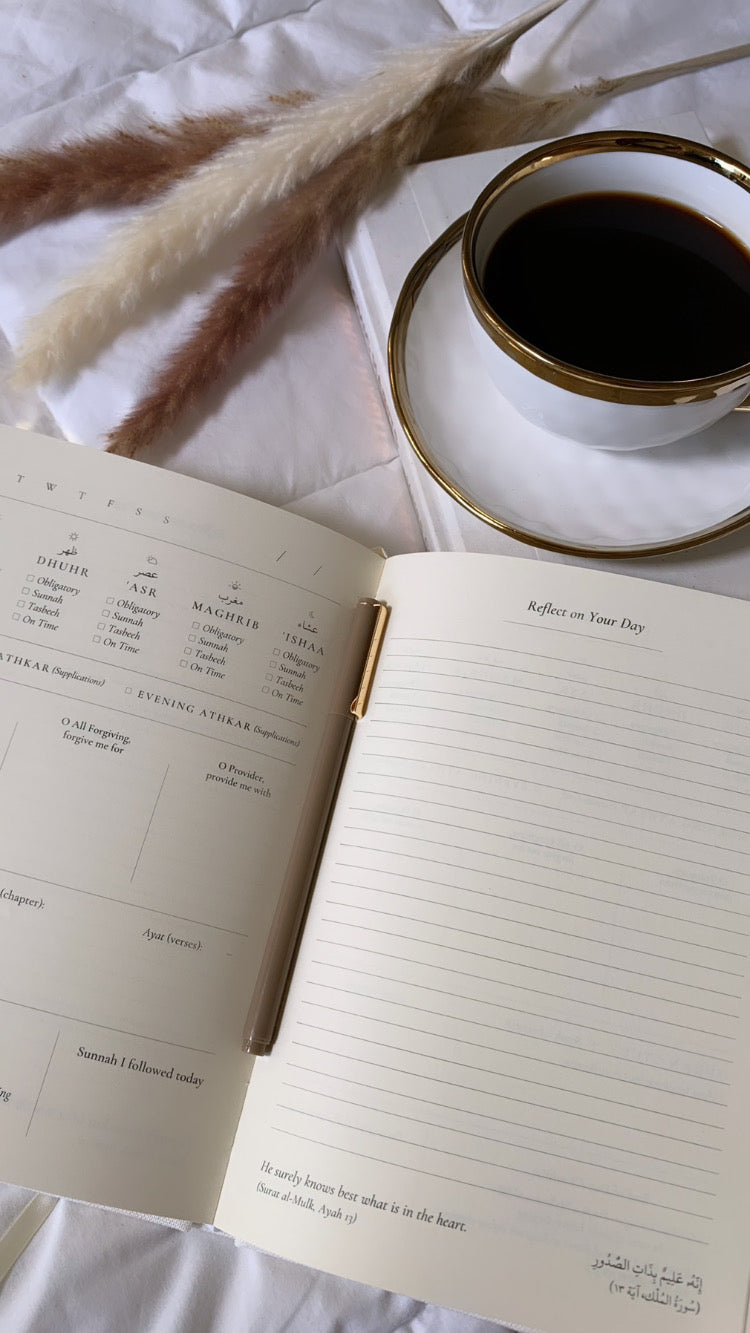 T W T F S S
/ /
ظهر
DHUHR
☐ Obligatory
☐ Sunnah
☐ Tasbeeh
☐ On Time
عصر
'ASR
☐ Obligatory
☐ Sunnah
☐ Tasbeeh
☐ On Time
مغرب
MAGHRIB
☐ Obligatory
☐ Sunnah
☐ Tasbeeh
☐ On Time
عشاء
'ISHAA
☐ Obligatory
☐ Sunnah
☐ Tasbeeh
☐ On Time
ATHKAR (Supplications)
☐ EVENING ATHKAR (Supplications)
O All Forgiving,
forgive me for
O Provider,
provide me with
(chapter):
Ayat (verses):
Sunnah I followed today
Reflect on Your Day
He surely knows best what is in the heart.
(Surat al-Mulk, Ayah 13)
إِنَّهُ عَلِيمٌ بِذَاتِ الصُّدُورِ
(سُورَةُ المُلْك، آيَة ١٣)